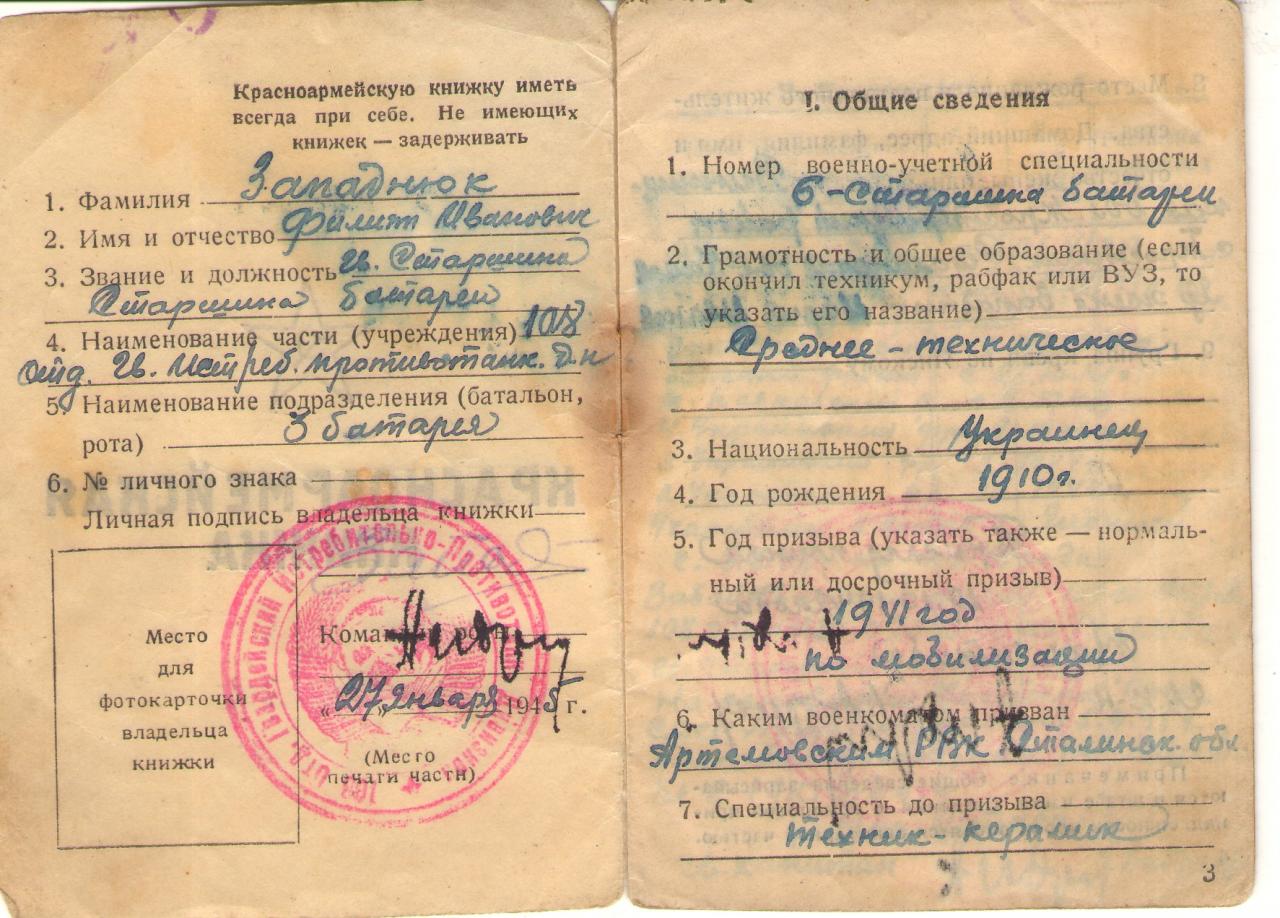 Красноармейскую книжку иметь
всегда при себе. Не имеющих
книжек — задерживать
1. Фамилия Западнюк
2. Имя и отчество Филипп Иванович
3. Звание и должность Гв. Старшина
Старшина батареи
4. Наименование части (учреждения) 108
отд. Гв. Истреб. противотанк. д-н
5. Наименование подразделения (батальон,
рота) 3 батарея
6. № личного знака
Личная подпись владельца книжки
Место
для
фотокарточки
владельца
книжки
Командир
„27" января 1945 г.
(Место
печати части)
108 Отд. Гвардейский Истребительно-Противо
I. Общие сведения
1. Номер военно-учетной специальности
6-Старшина батареи
2. Грамотность и общее образование (если
окончил техникум, рабфак или ВУЗ, то
указать его название)
Среднее-техническое
3. Национальность Украинец
4. Год рождения 1910 г.
5. Год призыва (указать также — нормаль-
ный или досрочный призыв)
1941 год
по мобилизации
6. Каким военкоматом призван
Артемовским РВК Сталинск. обл.
7. Специальность до призыва
техник-керамик
3